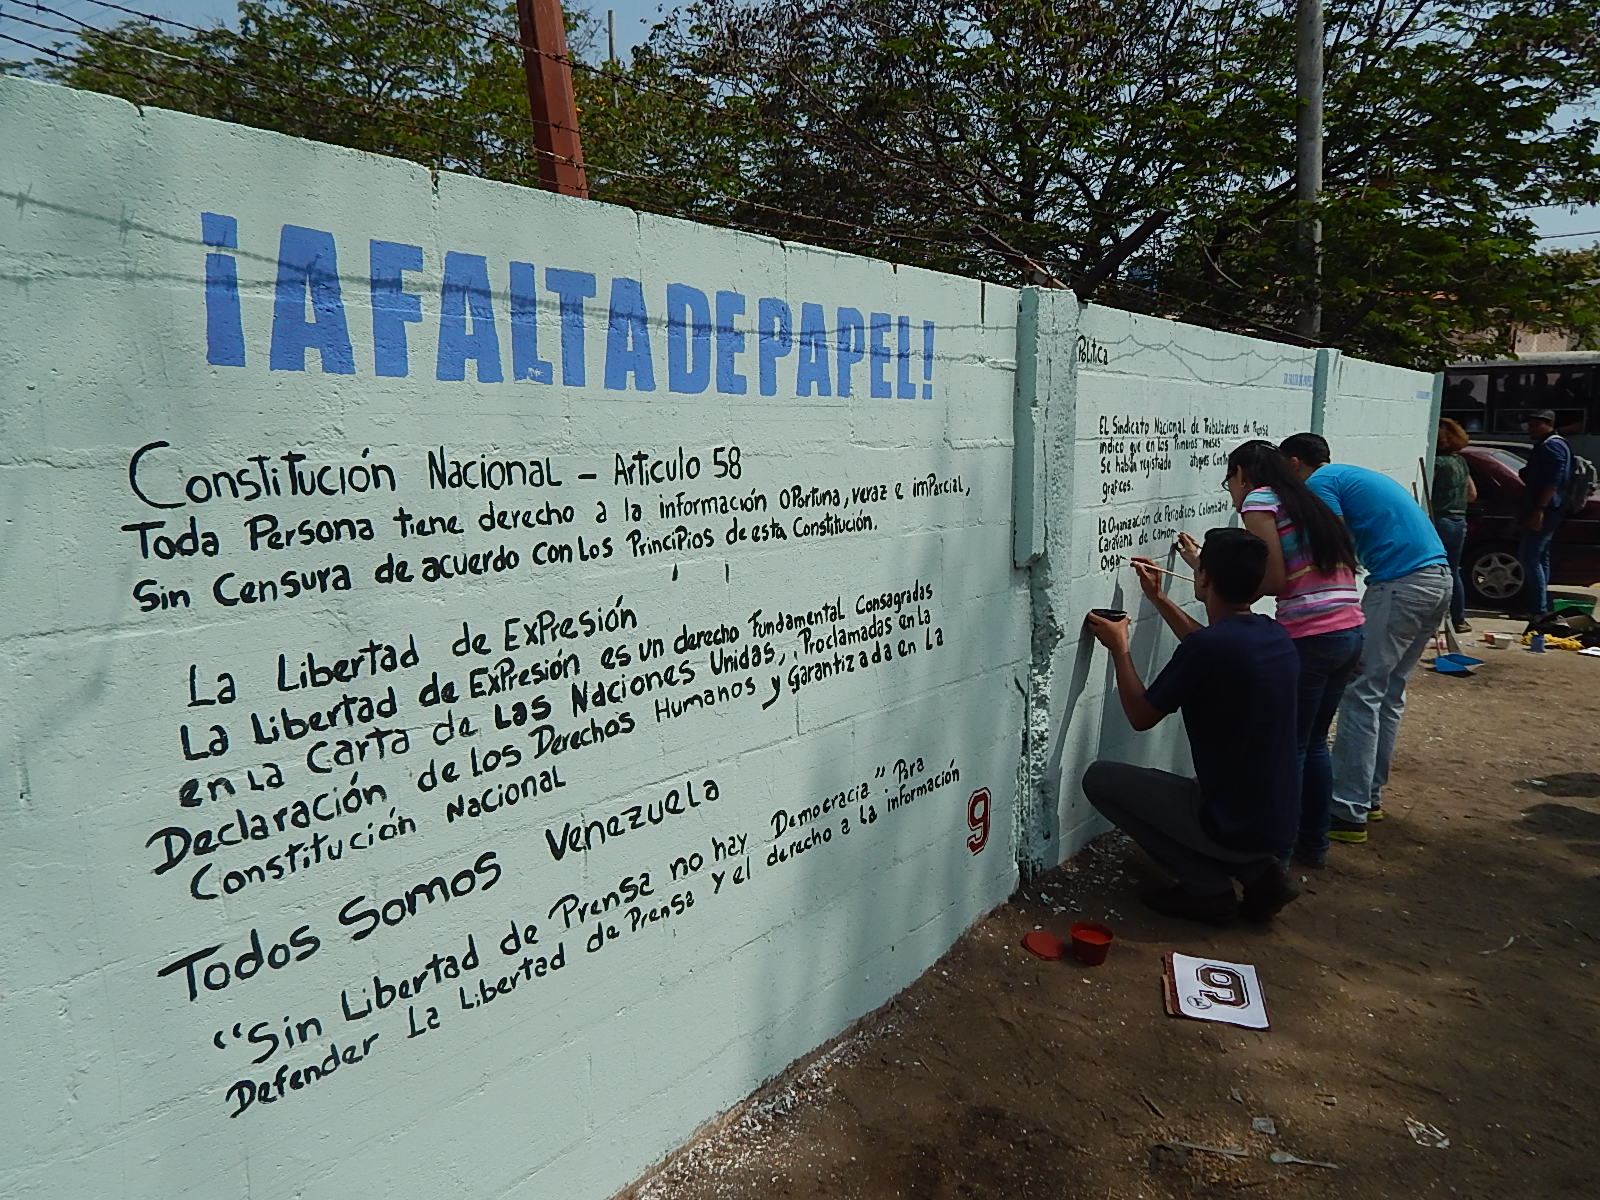 ¡A FALTA DE PAPEL!
Constitución Nacional - Articulo 58
Toda Persona tiene derecho a la información oportuna, veraz e imparcial,
Sin Censura de acuerdo con los Principios de esta Constitución.
La Libertad de Expresión
La Libertad de Expresión es un derecho Fundamental Consagradas
en la Carta de Las Naciones Unidas, Proclamadas en la
Declaración de los Derechos Humanos y Garantizada en La
Constitución Nacional
Todos Somos Venezuela
"Sin Libertad de Prensa no hay Democracia" Para
Defender La Libertad de Prensa y el derecho a la información
9
Política
EL Sindicato Nacional de Trabajadores de Prensa
indicó que en los Primeros meses
Se habían registrado ataques Contra
graficos.
La Organización de Periodicos Colombiana
Caravana de Camion
Organ
9